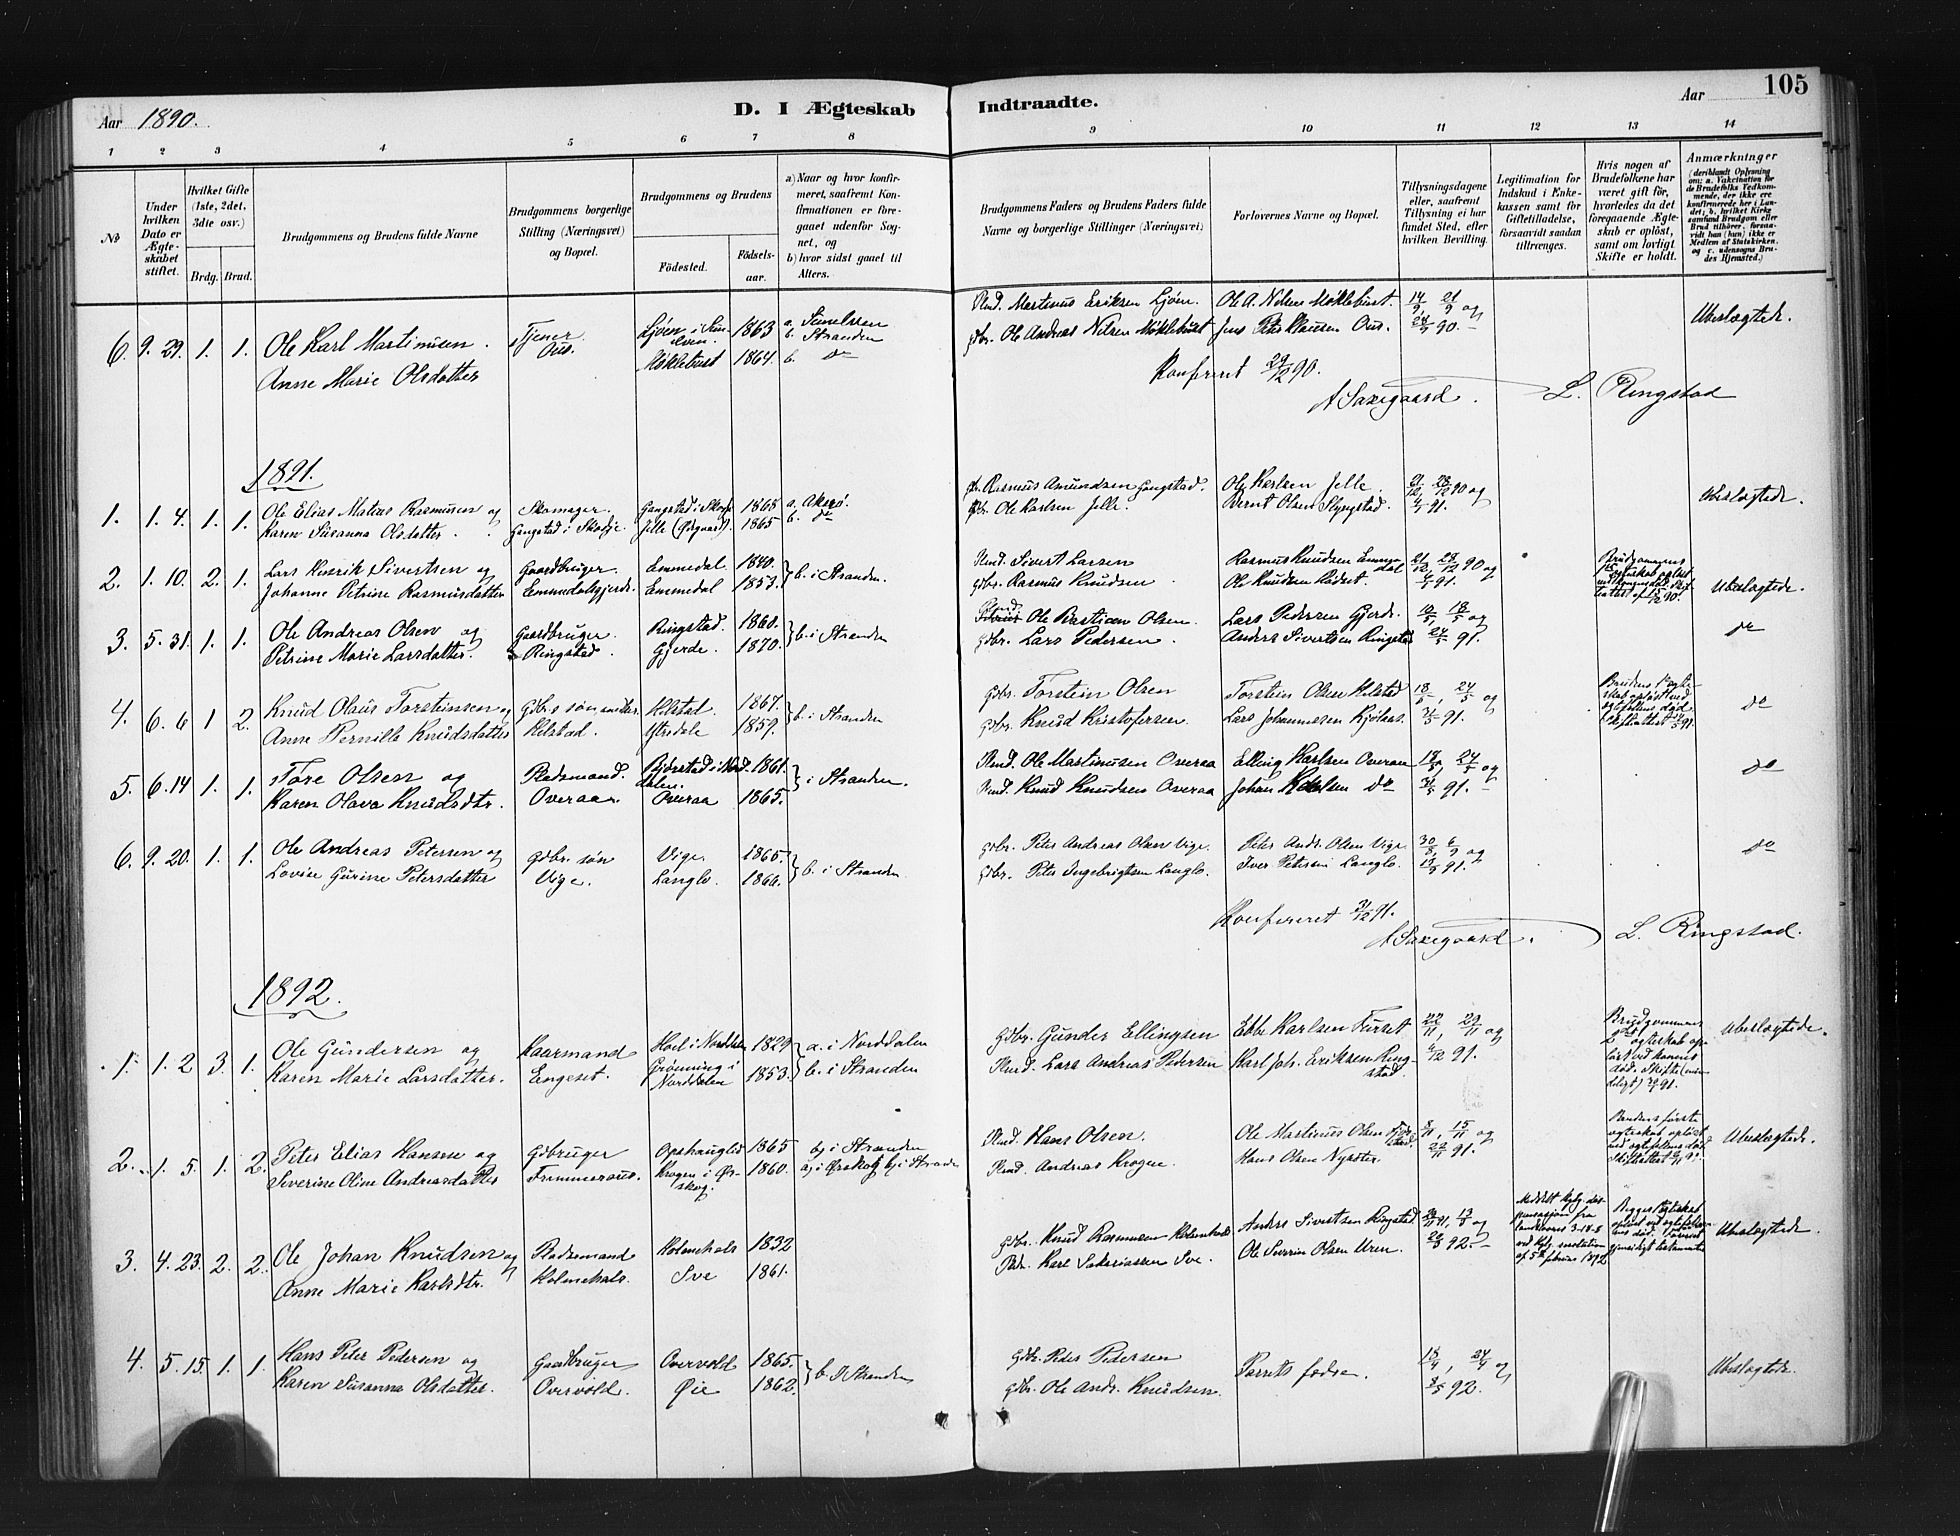 105
Aar 1890.
D. I Ægteskab Indtraadte.
Aar
1 2 3 4 5 6 7 8 9 10 11 12 13 14
No
Under hvilken Dato er Ægteskabet stiftet.
Hvilket Gifte (1ste, 2det, 3die osv.)
Brdg. Brud.
Brudgommens og Brudens fulde Navne
Brudgommens borgerlige Stilling (Næringsvei) og Bopæl.
Brudgommens og Brudens
Fødested. Fødselsaar.
a) Naar og hvor konfirmeret, saafremt Konfirmationen er foregaaet udenfor Sognet, og
b) hvor sidst gaaet til Alters.
Brudgommens Faders og Brudens Faders fulde Navne og borgerlige Stillinger (Næringsvei)
Forlovernes Navne og Bopæl.
Tillysningsdagene eller, saafremt Tillysning ei har fundet Sted, efter hvilken Bevilling.
Legitimation for Indskud i Enkekassen samt for Giftetilladelse, forsaavidt saadan tiltrænges.
Hvis nogen af Brudefolkene har været gift før, hvorledes da det foregaaende Ægteskab er opløst, samt om lovligt Skifte er holdt.
Anmærkninger (deriblandt Oplysning om: a. Vakcination for de Brudefolks Vedkommende, der ikke ere konfirmerede her i Landet; b. hvilket Kirkesamfund Brudgom eller Brud tilhører, forsaavidt han (hun) ikke er Medlem af Statskirken, og c. udensogns Brudes Hjemsted.)
6. 9. 29. 1. 1. Ole Karl Martinusen. Tjener Ljøen i Sunelven. 1863 a. Sunelven b. Stranden Kmd. Martinus Eriksen Ljøen. Ole A. Nilsen Møklebust. 14/9, 21/9 og Ubeslægtede.
Anne Marie Olsdatter Ous. Møklebust 1864. b. do gbr. Ole Andreas Nilsen Møklebust Jens Peter Klausen Ous.
Konfereret 29/12 90.
A Saxegaard. L. Ringstad
1891.
1. 1. 4. 1. 1. Ole Elias Matias Rasmusen og Skomager. Gangstad i Skodje 1865 a. Akerø. gbr. Rasmus Amundsen Gangstad. Ole Karlsen Jelle. 21/12, 28/12 90 og Ubeslægtede.
Karen Susanna Olsdatter. Gangstad i Skodje. Jelle 1865 b. do Gbr. Ole Karlsen Jelle. Bernt Olsen Slyngstad. 4/1 91.
2. 1. 10. 2. 1. Lars Henrik Sivertsen og Gaardbruger. Emmedal 1840. b. i Stranden. Kmd. Sivert Larsen Rasmus Knudsen Emmedal 21/12, 28/12 90 og Brudgommens Ubeslægtede.
Johanne Petrine Rasmusdatter Emmedalsgjerde. Emmedal 1853. gbr. Rasmus Knudsen. Ole Knudsen 4/1 91.
3. 5. 31. 1. 1. Ole Andreas Olsen og Gaardbruger. Ringstad. 1860. b. i Stranden Ole Bastian Olsen. Lars Pedersen Gjerde. 10/5, 18/5 og do
Petrine Marie Larsdatter. Ringstad. Gjerde. 1870. gbr. Lars Pedersen. Anders Sivertsen Ringstad 24/5 91.
4. 6. 6 1 2. Knud Olaus Torsteinsen og Gbr.s søn Helstad. 1867. b. i Stranden gbr. Torstein Olsen Torstein Olsen Helstad. 18/5, 24/5 og do
Anne Pernille Knudsdatter Helstad. Ytredale 1859. gbr. Knud Kristofersen. Lars Johannessen Kjølaas. 31/5 91.
5. 6. 14 1. 1. Tore Olsen og Pladsmand. Bjørstad i Norddalen. 1861. i Stranden. Kmd. Ole Martinusen Overaa Elling Karlsen Overaa 18/5, 24/5 og do
Karen Olava Knudsdtr. Overaa. Overaa 1865. Kmd. Knud Knudsen Overaa Johan Karlsen do 31/5 91.
6. 9. 20. 1. 1. Ole Andreas Petersen og gbr. søn Vige. 1865. b. i Stranden gbr. Peter Andreas Olsen Vige. Peter Andr. Olsen Vige 30/8, 6/9 og do
Lovise Gurine Petersdatter Vige. Langlo. 1866. gbr. Peter Ingebrigtsen Langlo. Iver Petersen Langlo. 13/9 91.
Konfereret 31/12 91.
A Saxegaard. L. Ringstad.
1892.
1. 1. 2 3. 1. Ole Gundersen og Kaarmand Hoel i Norddalen 1829 a. i Norddalen gbr. Gunder Ellingsen Ebbe Karlsen Furset 22/11, 29/11 og Brudgommens 2det ægteskab opløst ved konens død. Ubeslægtede.
Karen Marie Larsdatter. Engeset. Grønning i Norddalen 1853. b. i Stranden Kmd. Lars Andreas Pedersen Karl Joh. Eriksen Ringstad. 6/12 91.
2. 1. 5. 1. 2. Peter Elias Hansen og Gbruger Opshauglid 1865 b) i Stranden Kmd. Hans Olsen. Ole Martinus Olsen 15/11 og Brudens første ægteskab opløst ved ægtefellens død Ubeslægtede.
Severine Oline Andreasdatter Frimmeraus. Krogen i Ørskog. 1860. a) i Ørskog b) i Stranden Kmd. Andreas Krogen. Hans Olsen Nysæter. 22/11 91.
3. 4. 23. 2. 2. Ole Johan Knudsen og Pladsmand Holmehals 1832 gbr. Knud Rasmussen Holmehals Anders Sivertsen Ringstad 13/3 og Meddelt kglg. dispensasjon fra landlovens 3-18-8 ved kglg. resolution af 5te februar 1892 Begges ægteskab opløst ved ægtefellernes død. Ubeslægtede.
Anne Marie Karlsdtr. Holmehals. Sve 1861. Karl Sakariassen Sve. Ole Severin Olsen Uren. 20/3 92.
4. 5. 15. 1. 1. Hans Peter Pedersen og Gaardbruger Overvold 1865. b. I Stranden gbr. Peder Pedersen Parrets fædre. 18/4, 24/4 og Ubeslægtede.
Karen Susanna Olsdatter. Overvold. Øie 1862. gbr. Ole Andr. Knudsen. 8/5 92.